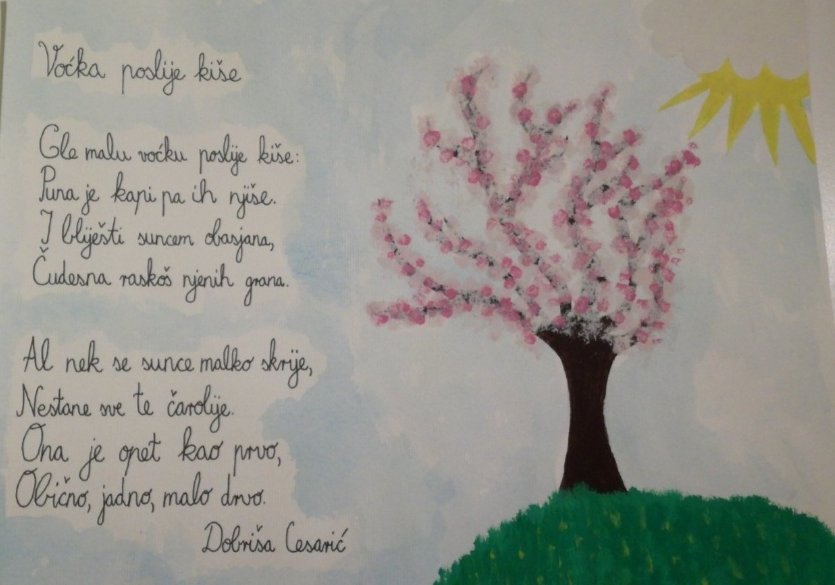 Voćka poslije kiše
Gle malu voćku poslije kiše:
Puna je kapi pa ih njiše.
I bliješti suncem obasjana,
Čudesna raskoš njenih grana.
Al nek se sunce malko skrije,
Nestane sve te čarolije.
Ona je opet kao prvo,
Obično, jadno, malo drvo.
Dobriša Cesarić